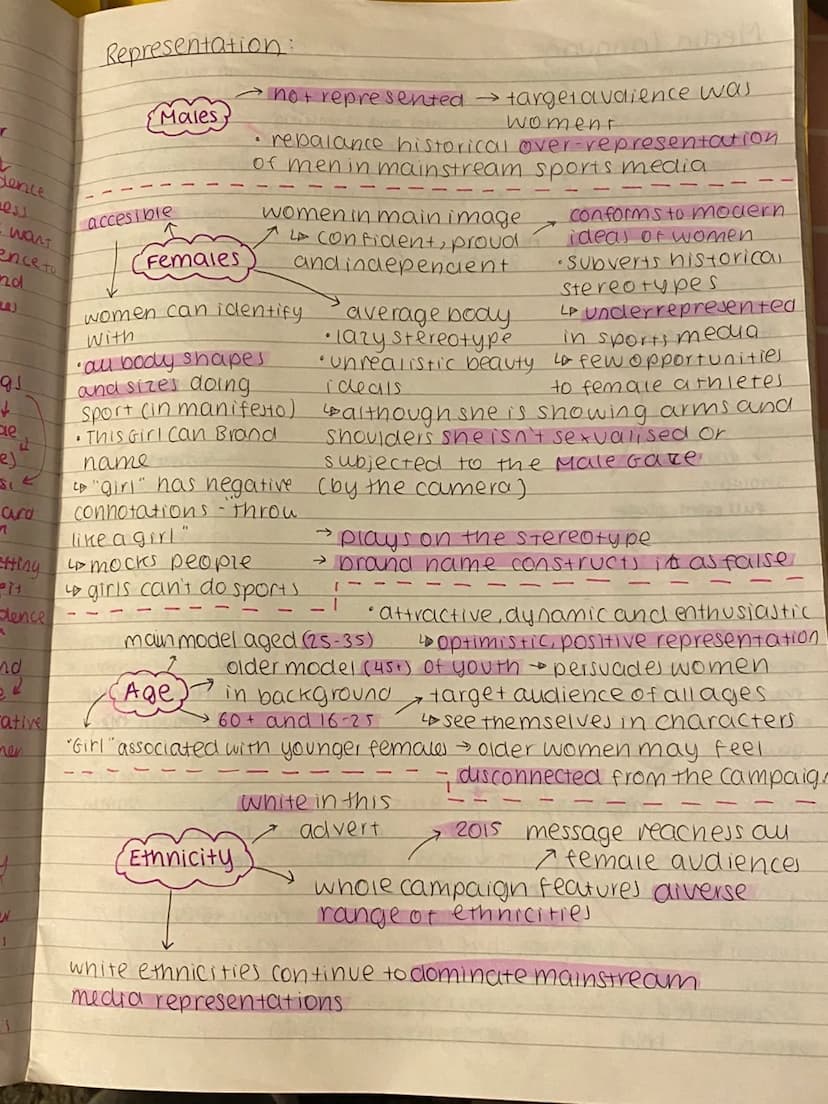 Representation:
Males
→ not represented → target audience was
women
• rebalance historical over-representation
of men in mainstream sports media
Females
accesible
women can identify
with
• all body shapes
and sizes doing
sport (in manifesto)
• This Girl Can Brand
name
↳ "girl" has negative
connotations - "throw
like a girl"
↳ mocks people
↳ girls can't do sports
women in main image
↳ confident, proud
and independent
→ conforms to modern
ideas of women
• subverts historical
stereotypes
↳ underrepresented
in sports media
↳ few opportunities
to female athletes
average body
• lazy stereotype
• unrealistic beauty
ideals
↳ although she is showing arms and
shoulders she isn't sexualised or
subjected to the Male Gaze
(by the camera)
→ plays on the stereotype
→ brand name constructs it as false
Age
main model aged (25-35)
• attractive, dynamic and enthusiastic
↳ optimistic, positive representation
of youth → persuades women
older model (45+)
in background
→ 60+ and 16-25
→ target audience of all ages
↳ see themselves in characters
"Girl" associated with younger females → older women may feel
disconnected from the campaign
Ethnicity
white in this
advert
whole campaign features diverse
range of ethnicities
→ 2015
↗ message reachess all
female audiences
white ethnicities continue to dominate mainstream
media representations